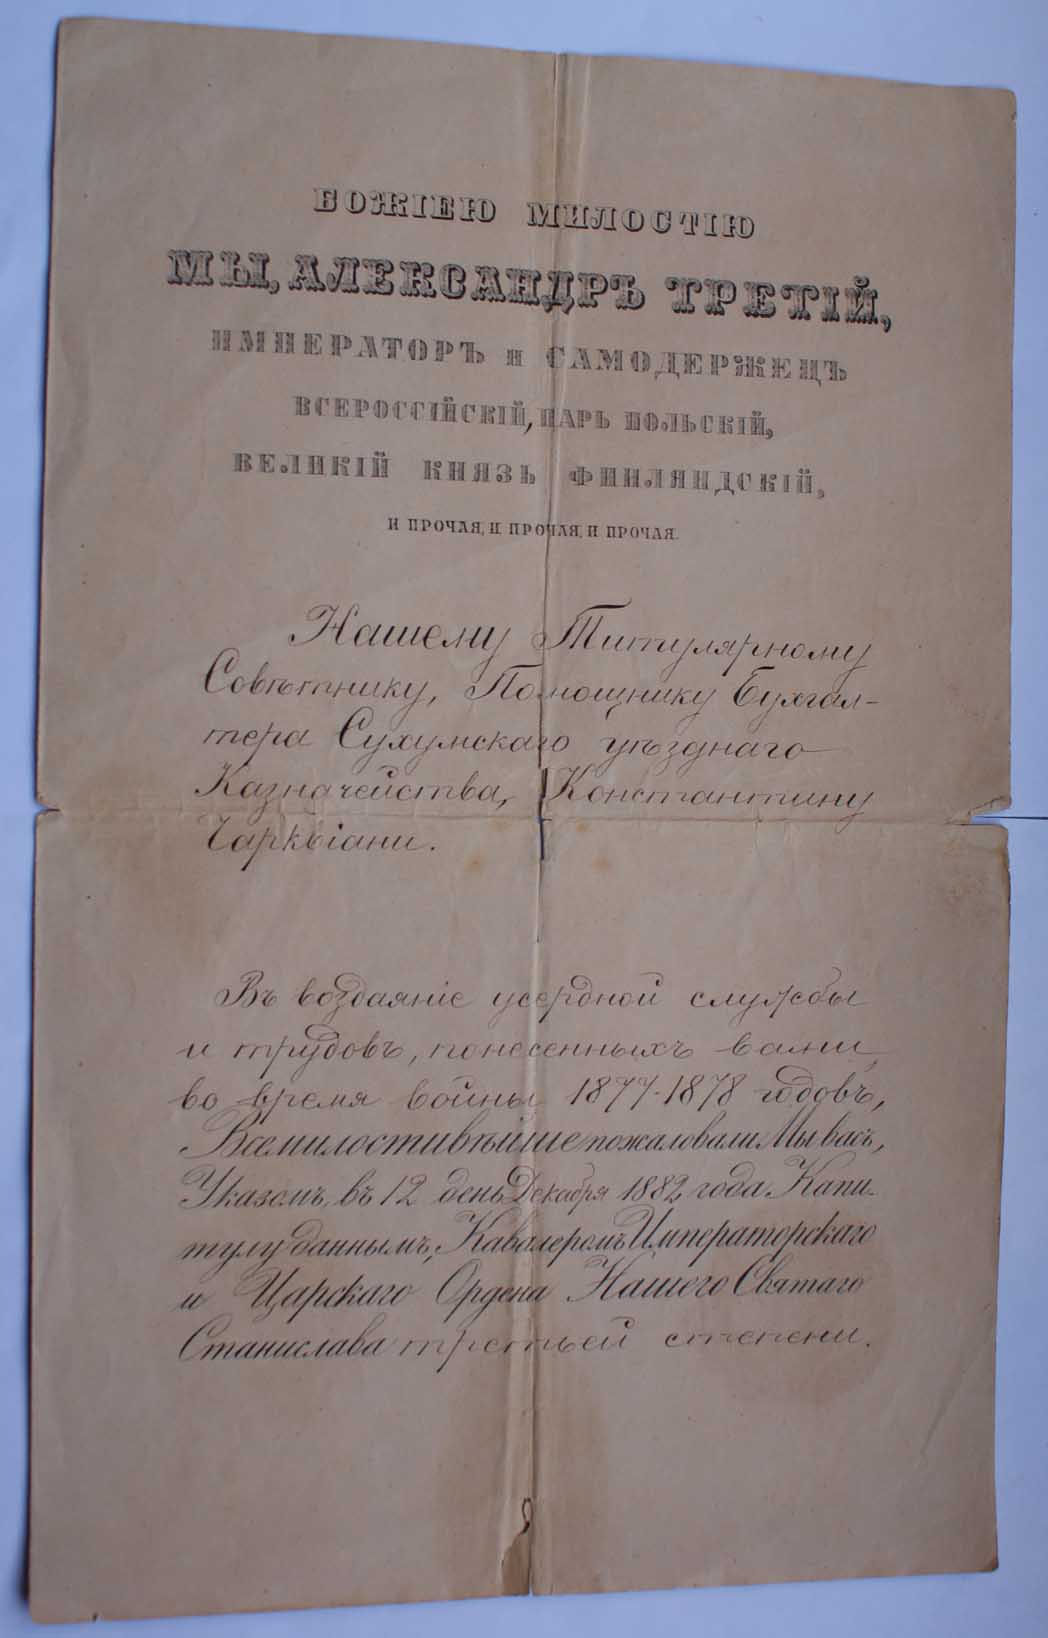 БОЖІЕЮ МИЛОСТІЮ
МЫ, АЛЕКСАНДРЪ ТРЕТІЙ,
ИМПЕРАТОРЪ и САМОДЕРЖЕЦЪ
ВСЕРОССІЙСКІЙ, ЦАРЬ ПОЛЬСКІЙ,
ВЕЛИКІЙ КНЯЗЬ ФИНЛЯНДСКІЙ,
И ПРОЧАЯ, И ПРОЧАЯ, И ПРОЧАЯ.
Нашему Титулярному
Совѣтнику, Помощнику Бухгал-
тера Сухумскаго уѣзднаго
Казначейства, Константину
Чарквіани.
Въ воздаяніе усердной службы
и трудовъ, понесенныхъ вами,
во время войны 1877-1878 годовъ,
Всемилостивѣйше пожаловали Мы васъ,
Указомъ, въ 12 день Декабря 1882 года Капи-
тулу даннымъ, Кавалеромъ Императорскаго
и Царскаго Ордена Нашего Святаго
Станислава третьей степени.